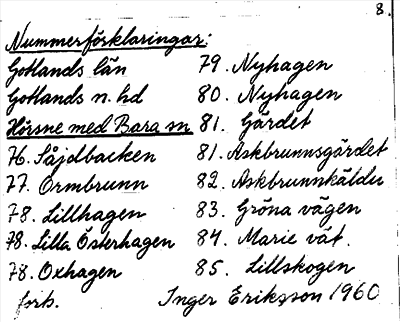 8.
Nummerförklaringar:
Gotlands län
Gotlands n. hd
Hörsne med Bara sn
76. Såjdbacken
77. Ormbrunn
78. Lillhagen
78. Lilla Österhagen
78. Oxhagen
forts.
79. Nyhagen
80. Nyhagen
81. Gärdet
81. Askbrunnsgärdet
82. Askbrunnkäldu
83. Gröna vägen
84. Marie vät.
85. Lillskogen
Inger Eriksson 1960